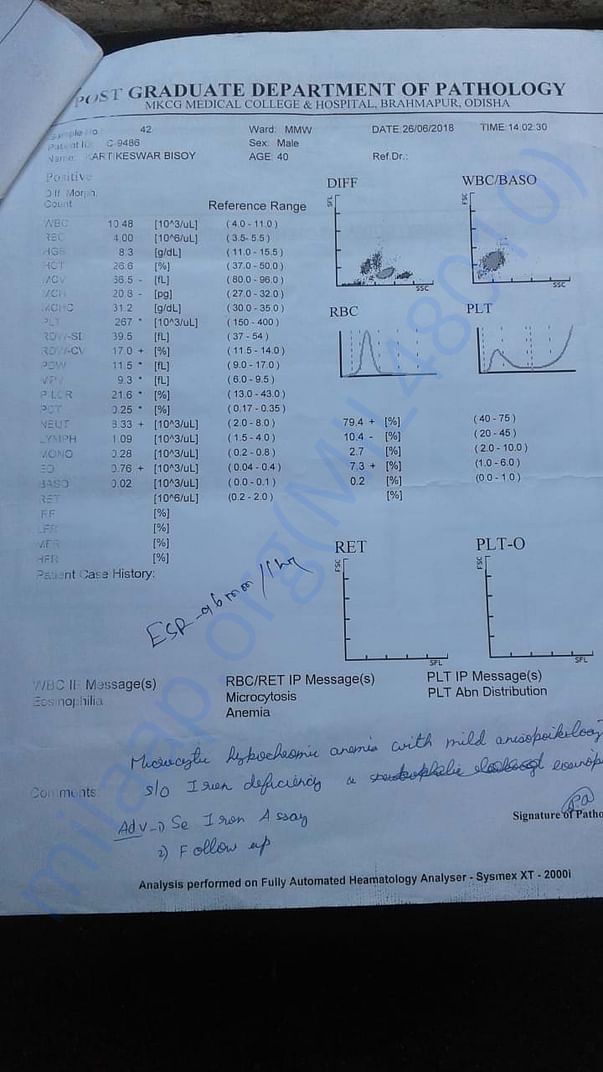 POST GRADUATE DEPARTMENT OF PATHOLOGY
MKCG MEDICAL COLLEGE & HOSPITAL, BRAHMAPUR, ODISHA
Sample No. 42 Ward: MMW DATE:26/06/2018 TIME:14:02:30
Patient ID: C-9486 Sex: Male
Name: KARTIKESWAR BISOY AGE: 40 Ref.Dr.:
Positive
Diff. Morph.
Count
DIFF WBC/BASO
Reference Range
WBC 10.48 [10^3/uL] (4.0 - 11.0)
RBC 4.00 [10^6/uL] (3.5- 5.5)
HGB 8.3 [g/dL] (11.0 - 15.5)
HCT 26.6 [%] (37.0 - 50.0)
MCV 66.5 - [fL] (80.0 - 96.0)
MCH 20.8 - [pg] (27.0 - 32.0)
MCHC 31.2 [g/dL] (30.0 - 35.0)
PLT 267 * [10^3/uL] (150 - 400)
RDW-SD 39.5 [fL] (37 - 54)
RDW-CV 17.0 + [%] (11.5 - 14.0)
PDW 11.5 * [fL] (9.0 - 17.0)
MPV 9.3 * [fL] (6.0 - 9.5)
P-LCR 21.6 * [%] (13.0 - 43.0)
PCT 0.25 * [%] (0.17 - 0.35)
NEUT 8.33 + [10^3/uL] (2.0 - 8.0) 79.4 + [%] (40 - 75)
LYMPH 1.09 [10^3/uL] (1.5 - 4.0) 10.4 - [%] (20 - 45)
MONO 0.28 [10^3/uL] (0.2 - 0.8) 2.7 [%] (2.0 - 10.0)
EO 0.76 + [10^3/uL] (0.04 - 0.4) 7.3 + [%] (1.0 - 6.0)
BASO 0.02 [10^3/uL] (0.0 - 0.1) 0.2 [%] (0.0 - 1.0)
RET [10^6/uL] (0.2 - 2.0) [%]
IRF [%]
LFR [%]
MFR [%]
HFR [%]
SFL SSC FSC SSC
RBC PLT
RET PLT-O
FSC SFL FSC SFL
Patient Case History:
ESR - 96 mm/1hr
WBC IP Message(s) RBC/RET IP Message(s) PLT IP Message(s)
Eosinophilia Microcytosis PLT Abn Distribution
Anemia
Microcytic hypochromic anemia with mild
Comments: s/o Iron deficiency
Adv - 1) Se Iron Assay
2) Follow up
Signature of Patho
Analysis performed on Fully Automated Heamatology Analyser - Sysmex XT - 2000i
milaap.org(MIL_48010)